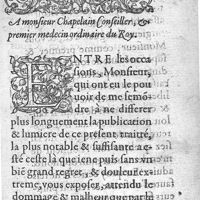 A monsieur Chapelain Conseiller, &
premier medecin ordinaire du Roy.
ENTRE les occa
sions, Monsieur,
qui ont eu le pou
uoir de me semõ
dre, à ne differer
plus longuement la publication
& lumiere de ce present traitté,
la plus notable & suffisante a
esté ceste là que ie ne puis sans vn
bien grand regret, & douleur ex
treme, vous exposer, attendu le
dommage & malheur que par là